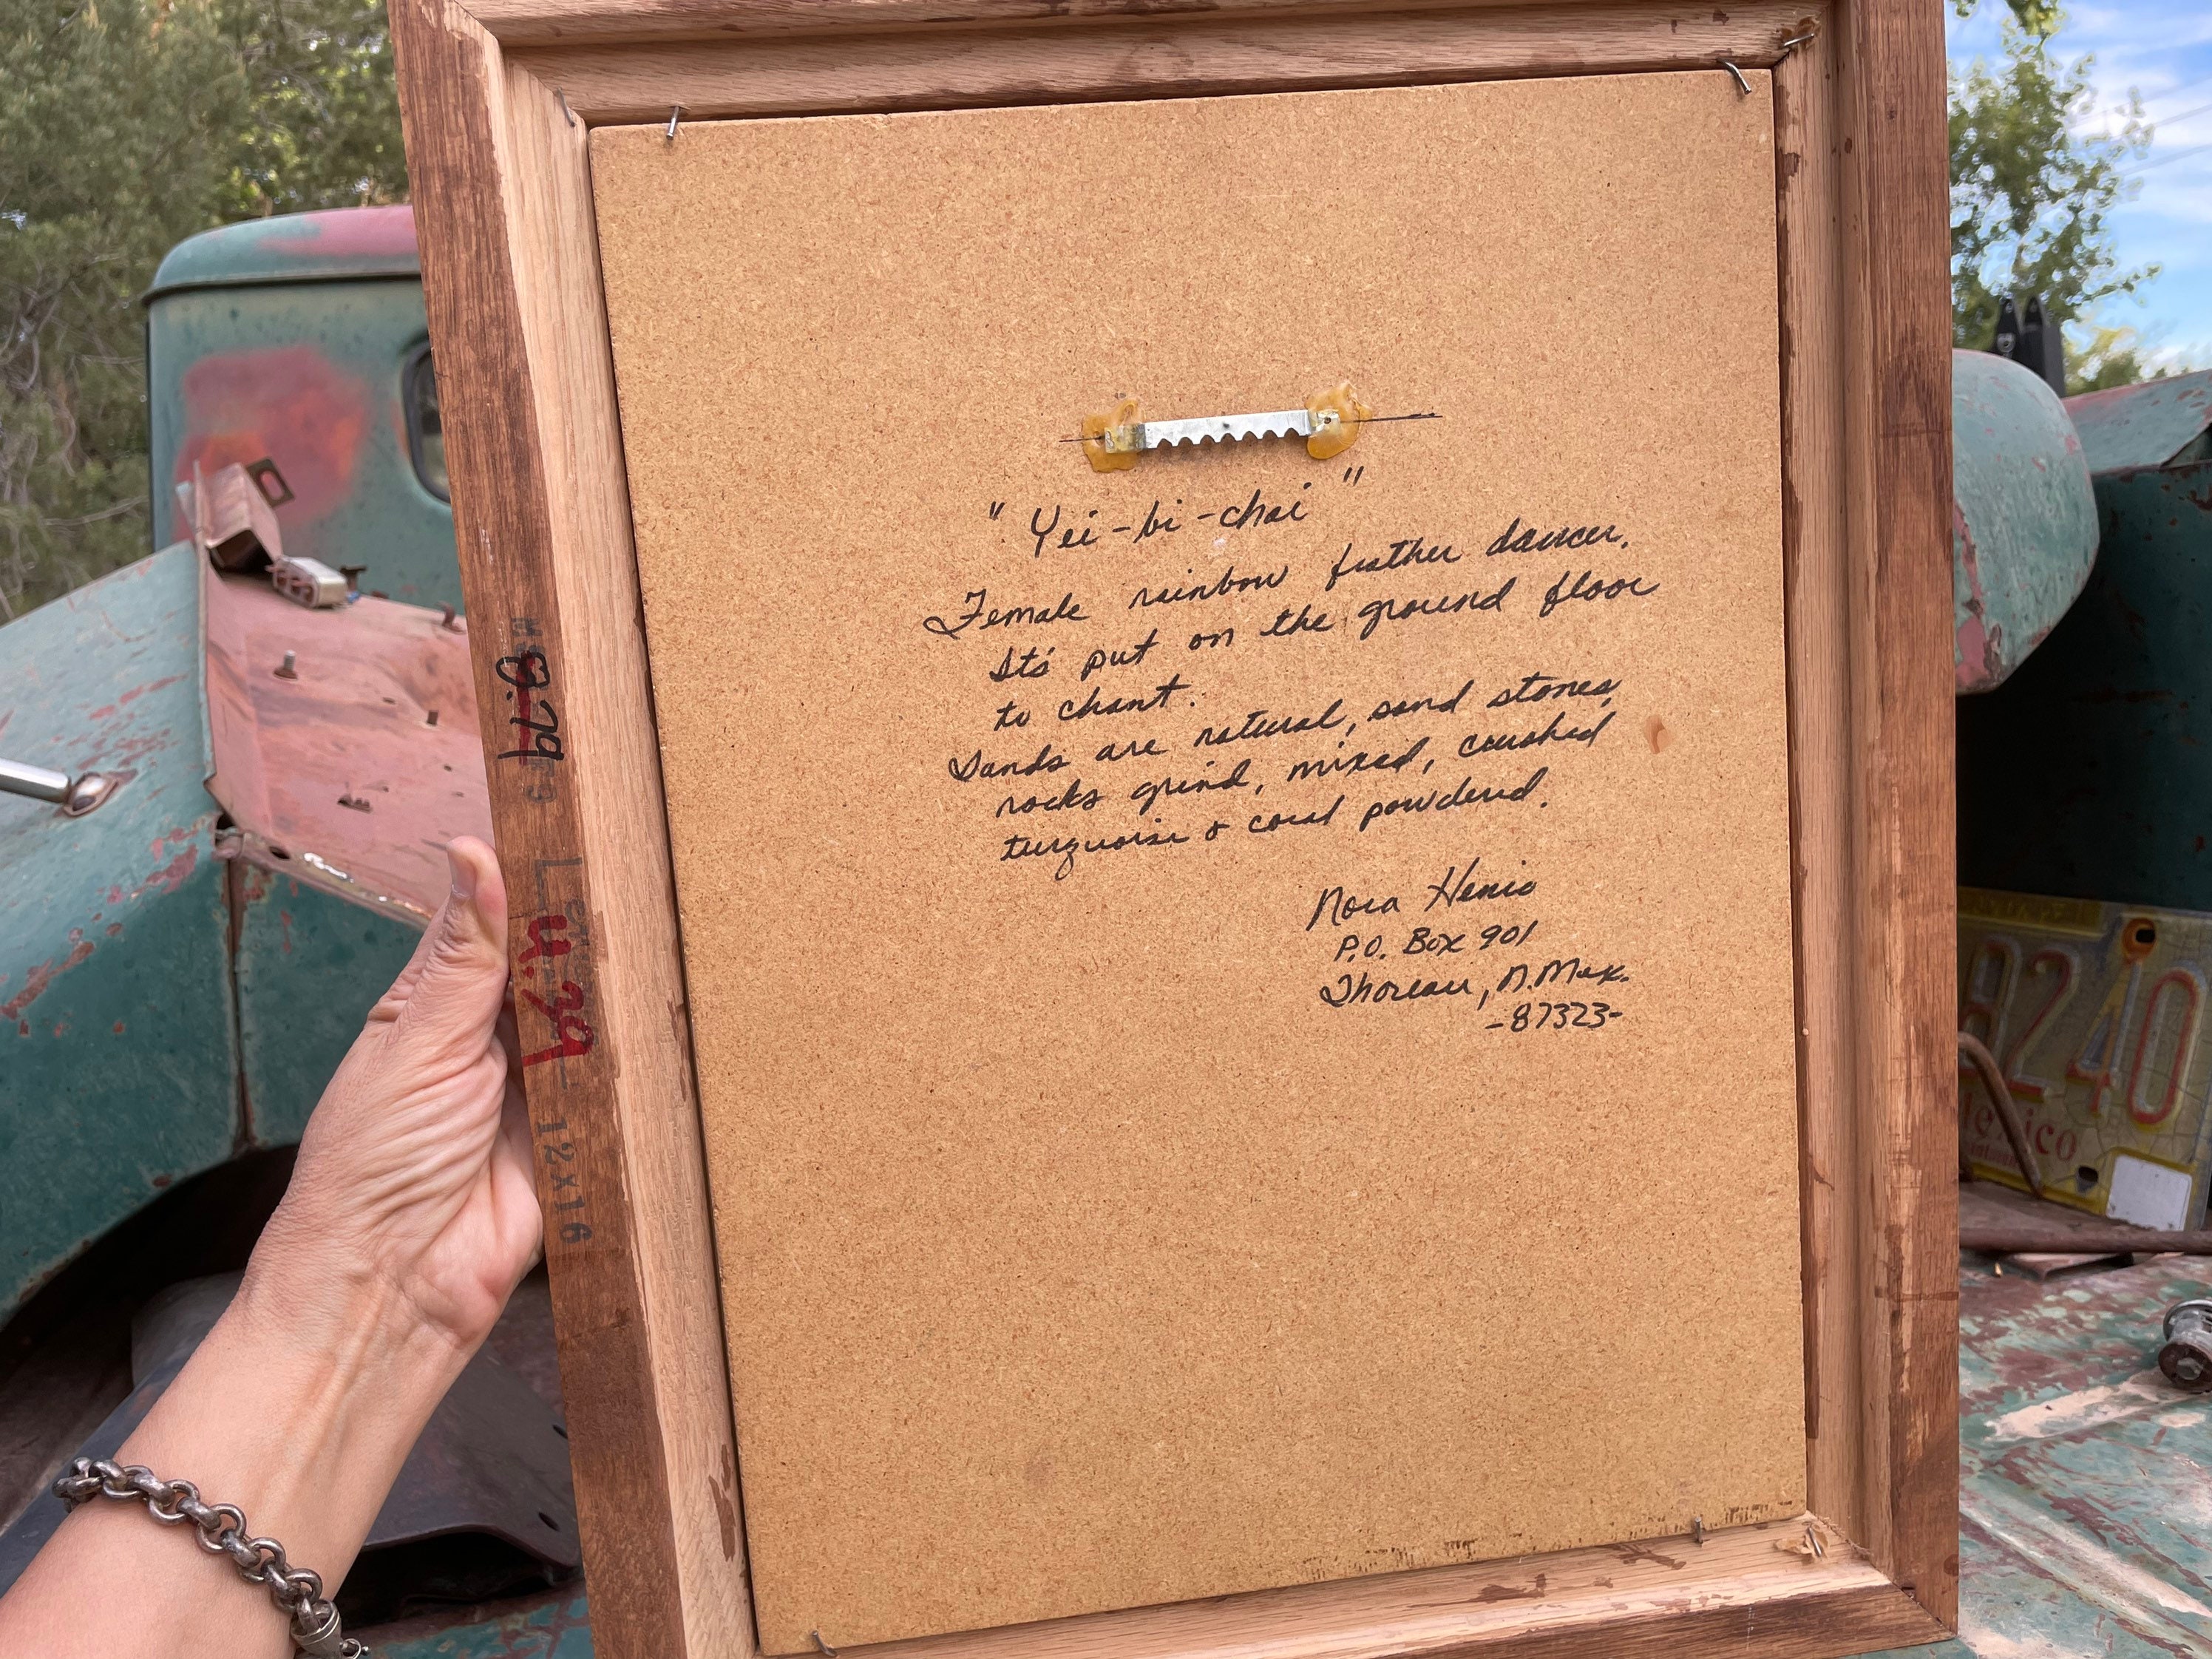 " Yei-bi-chai "
Female rainbow feather dancer.
Its put on the ground floor
to chant.
Sands are natural, sand stones,
rocks grind, mixed, crushed
turquoise & coral powdered.
Nora Henio
P.O. Box 901
Thoreau, N. Mex.
-87323-
12x16
240